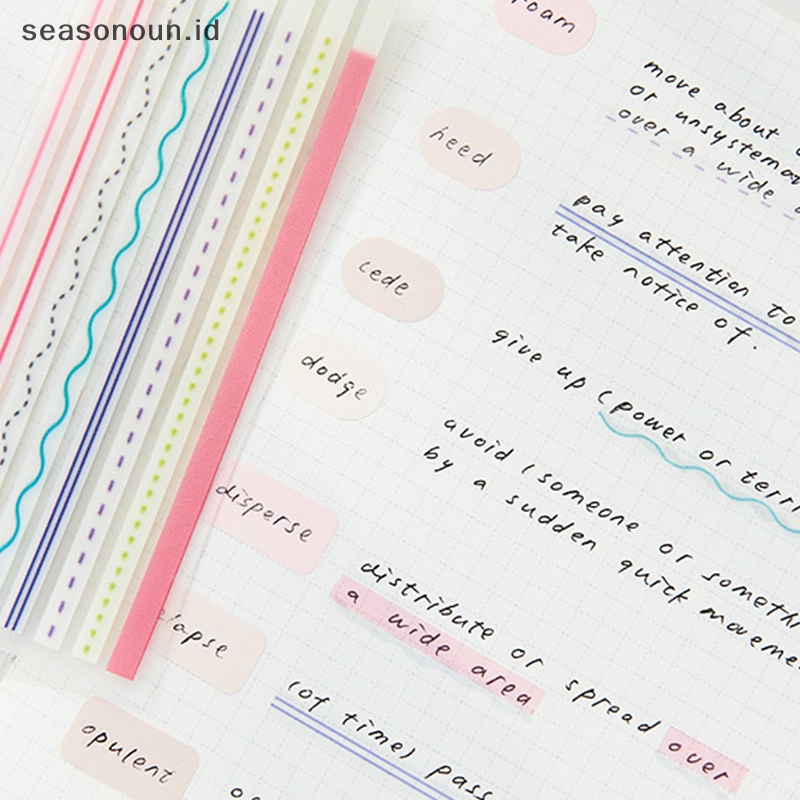 seasonoun.id
roam
move about
or unsystema
over a wide
heed
pay attention to
take notice of.
cede
give up (power or terri
dodge
avoid (someone or someth
by a sudden quick moveme
disperse
distribute or spread over
a wide area
elapse
(of time) pass
opulent